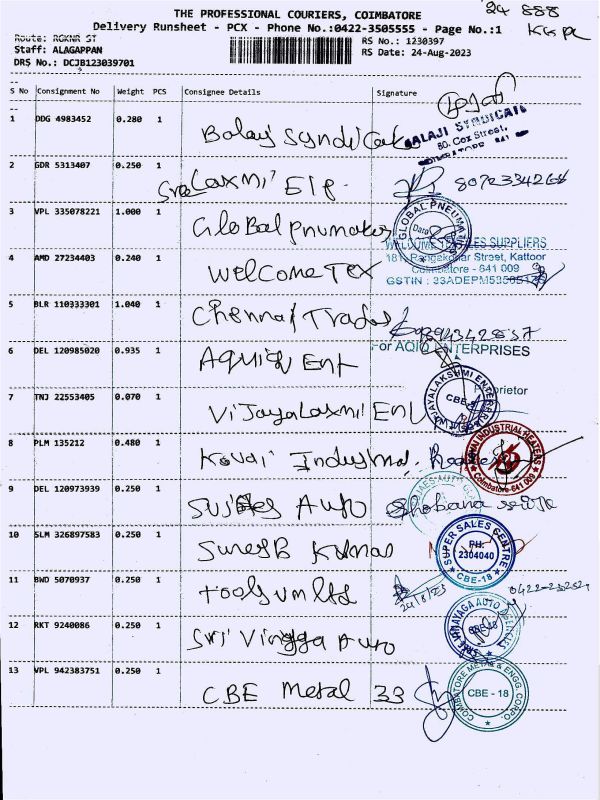 THE PROFESSIONAL COURIERS, COIMBATORE
24 888
Delivery Runsheet - PCX - Phone No.:0422-3505555 - Page No.:1
Route: RGKNR ST
RS No.: 1230397
Staff: ALAGAPPAN
RS Date: 24-Aug-2023
DRS No.: DCJB123039701
S No Consignment No Weight PCS Consignee Details Signature
1 DDG 4983452 0.280 1 Balaji Syndicate
BALAJI SYNDICATE
80, Cox Street,
COIMBATORE - 641
2 GDR 5313407 0.250 1 Sree Laxmi Elp.
3 VPL 335078221 1.000 1 Global pnumates
GLOBAL PNEUMATICS
WELCOME TEXTILES SUPPLIERS
4 AMD 27234403 0.240 1 Welcome Tex
Street, Kattoor
Coimbatore - 641 009
GSTIN : 33ADEPM
5 BLR 110333301 1.040 1 Chennai Trades
For AQIQ ENTERPRISES
6 DEL 120985020 0.935 1 Aquiq Ent
Proprietor
7 TNJ 22553405 0.070 1 Vijayalaxmi Ent
VIJAYALAKSHMI ENTER
CBE-9
8 PLM 135212 0.480 1 Kovai Industrial Heaters
INDUSTRIAL HEATERS
Coimbatore-641 009
9 DEL 120973939 0.250 1 Auto
Shobana
10 SLM 326897583 0.250 1 Suresh Kumar
SUPER SALES CENTRE
PH:
2304040
CBE-18
11 BWD 5070937 0.250 1 toolgum ltd
24/8/23
12 RKT 9240086 0.250 1 Sri Vingga Auto
VINAYAGA AUTO
13 VPL 942383751 0.250 1 CBE Metal 33
COIMBATORE METAL & ENGG. CORPO.
CBE - 18